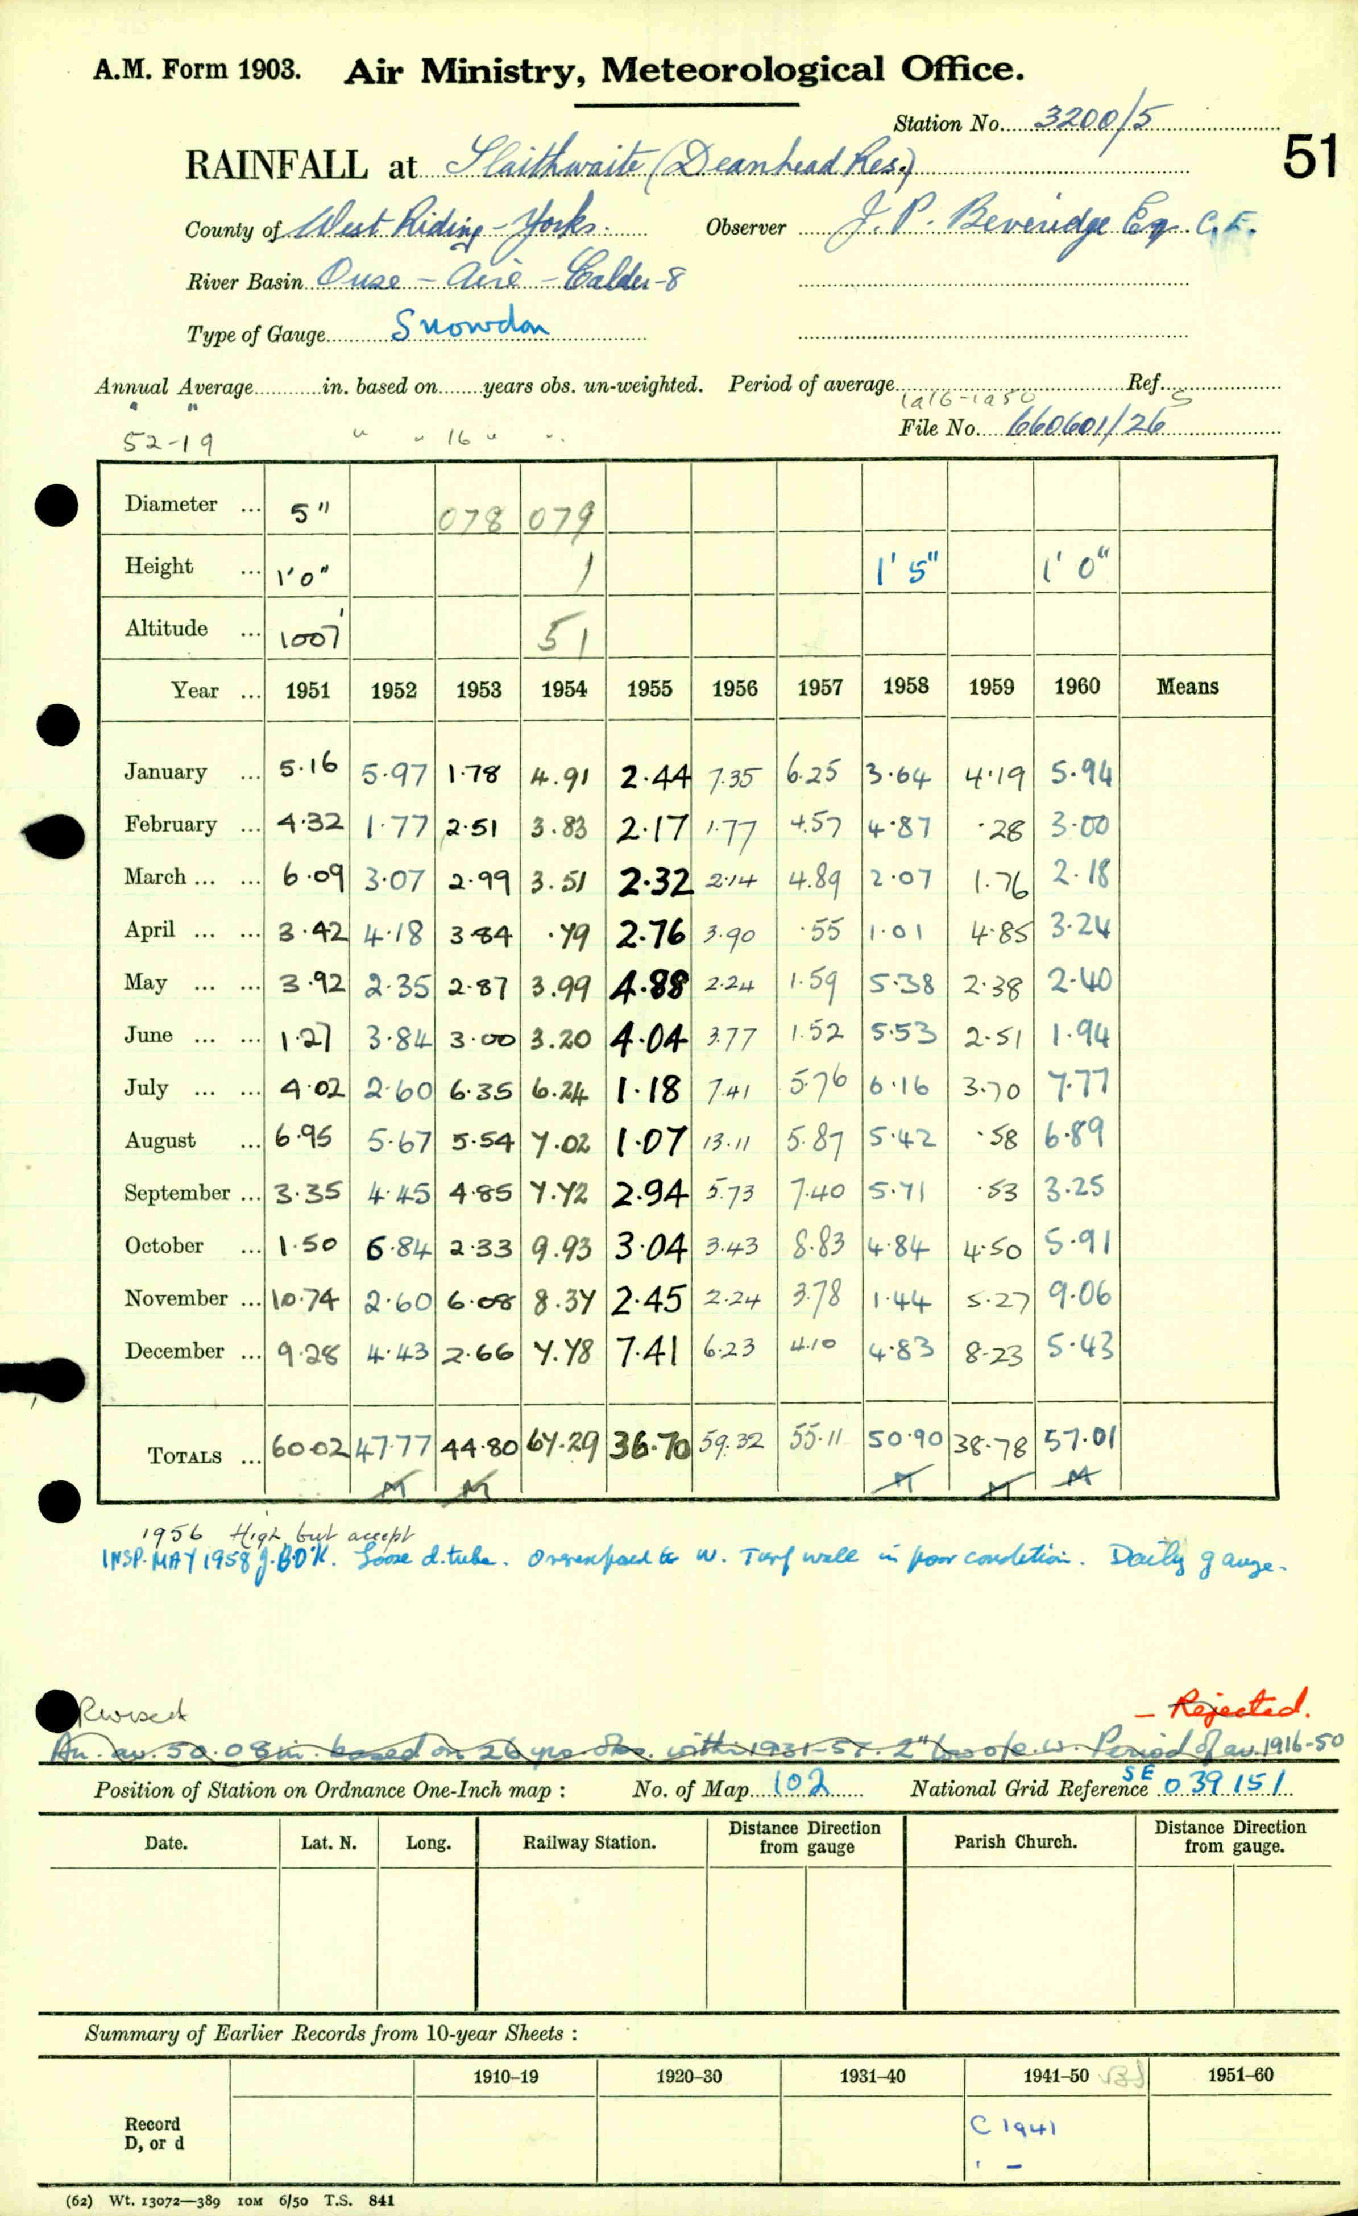 A.M. Form 1903. Air Ministry, Meteorological Office.
Station No. 3200/5
51
RAINFALL at Slaithwaite (Deanhead Res.)
County of West Riding - Yorks. Observer J. P. Beveridge Esq. C.E.
River Basin Ouse - Aire - Calder - 8
Type of Gauge Snowdon
Annual Average in. based on years obs. un-weighted. Period of average 1916-1950 Ref. S
" " 52-19 " " 16 " " File No. 660601/26
Diameter ... 5" 078 079
Height ... 1'0" 1 1'5" 1'0"
Altitude ... 1007' 51
Year ... 1951 1952 1953 1954 1955 1956 1957 1958 1959 1960 Means
January ... 5.16 5.97 1.78 4.91 2.44 7.35 6.25 3.64 4.19 5.94
February ... 4.32 1.77 2.51 3.83 2.17 1.77 4.57 4.87 .28 3.00
March ... ... 6.09 3.07 2.99 3.51 2.32 2.14 4.89 2.07 1.76 2.18
April ... ... 3.42 4.18 3.84 .79 2.76 3.90 .55 1.01 4.85 3.24
May ... ... 3.92 2.35 2.87 3.99 4.88 2.24 1.59 5.38 2.38 2.40
June ... ... 1.27 3.84 3.00 3.20 4.04 3.77 1.52 5.53 2.51 1.94
July ... ... 4.02 2.60 6.35 6.24 1.18 7.41 5.76 6.16 3.70 7.77
August ... 6.95 5.67 5.54 7.02 1.07 13.11 5.87 5.42 .58 6.89
September ... 3.35 4.45 4.85 7.72 2.94 5.73 7.40 5.71 .53 3.25
October ... 1.50 6.84 2.33 9.93 3.04 3.43 8.83 4.84 4.50 5.91
November ... 10.74 2.60 6.08 8.37 2.45 2.24 3.78 1.44 5.27 9.06
December ... 9.28 4.43 2.66 7.78 7.41 6.23 4.10 4.83 8.23 5.43
TOTALS ... 60.02 47.77 44.80 67.29 36.70 59.32 55.11 50.90 38.78 57.01
M M M M M
1956 High but accept
INSP. MAY 1958 J.BDK. Loose d.tube. Overexposed to W. Turf wall in poor condition. Daily gauge.
Revised
- Rejected.
An. av. 50.08 in. based on 26 yrs obs. within 1931-57. Period of av. 1916-50
Position of Station on Ordnance One-Inch map : No. of Map 102 National Grid Reference SE 039 151
Date. Lat. N. Long. Railway Station. Distance from Direction gauge Parish Church. Distance from Direction gauge.
Summary of Earlier Records from 10-year Sheets :
1910–19 1920–30 1931–40 1941–50 1951–60
Record
D, or d
C 1941
(62) Wt. 13072—389 10M 6/50 T.S. 841